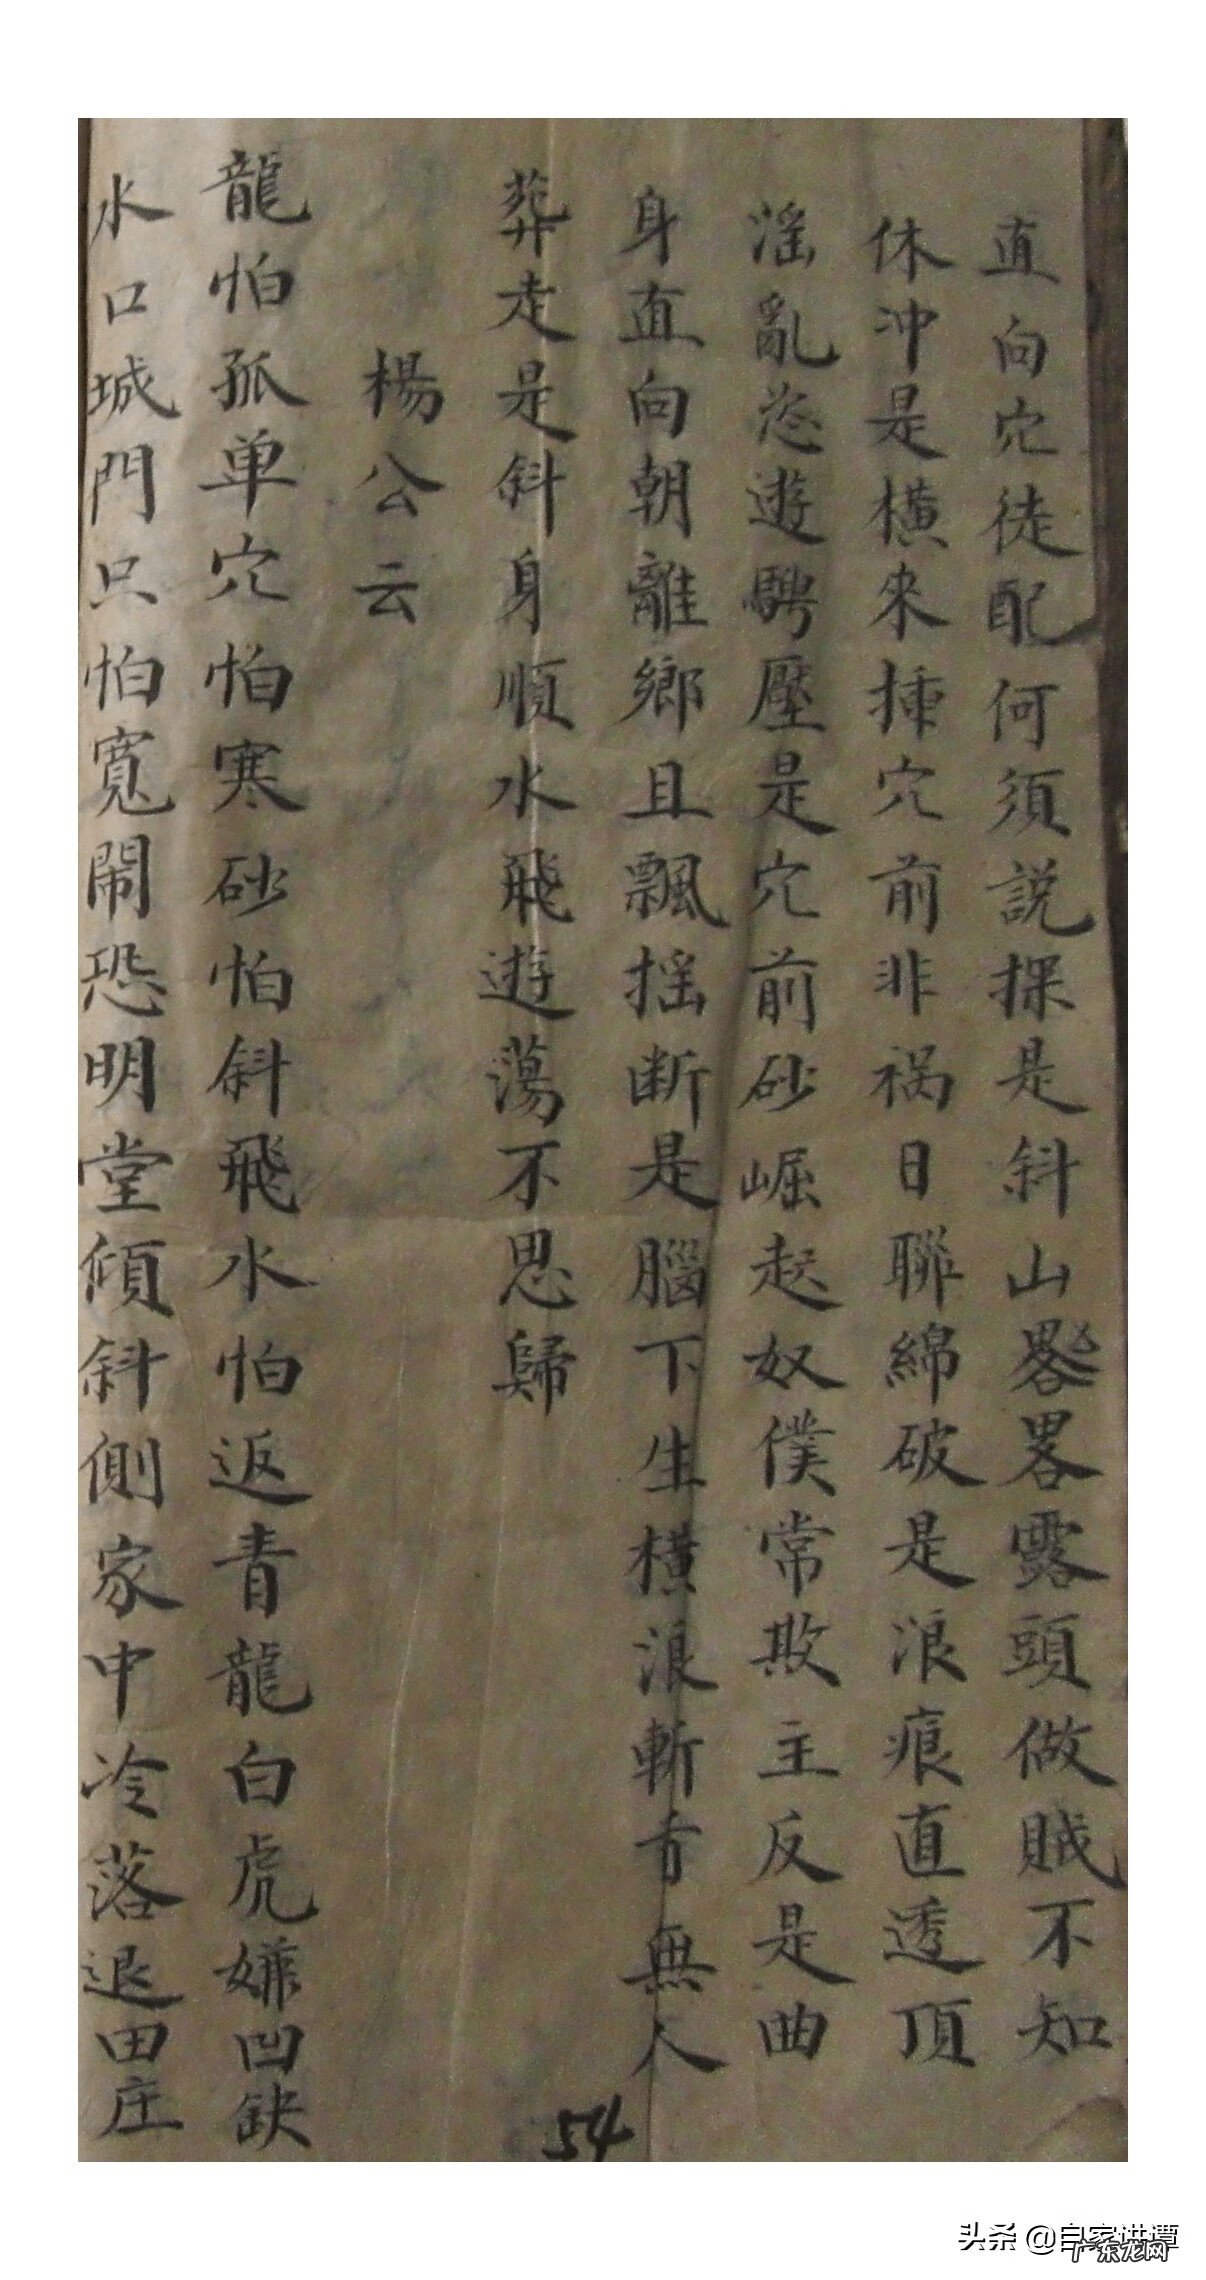 直向穴徒配何須説探是斜山畧畧露頭做賊不知
休冲是横來揷穴前非禍日聯綿破是浪痕直透頂
滛亂恣遊騁壓是穴前砂崛起奴僕常欺主反是曲
身直向朝離鄉且飄揺断是腦下生横浪斬首無人
葬走是斜身順水飛遊蕩不思歸
楊公云
龍怕孤单穴怕寒砂怕斜飛水怕返青龍白虎嫌凹缺
水口城門只怕寬閙恐明堂傾斜側家中冷落退田庄
54
头条 @自家讲谭
广东龙网